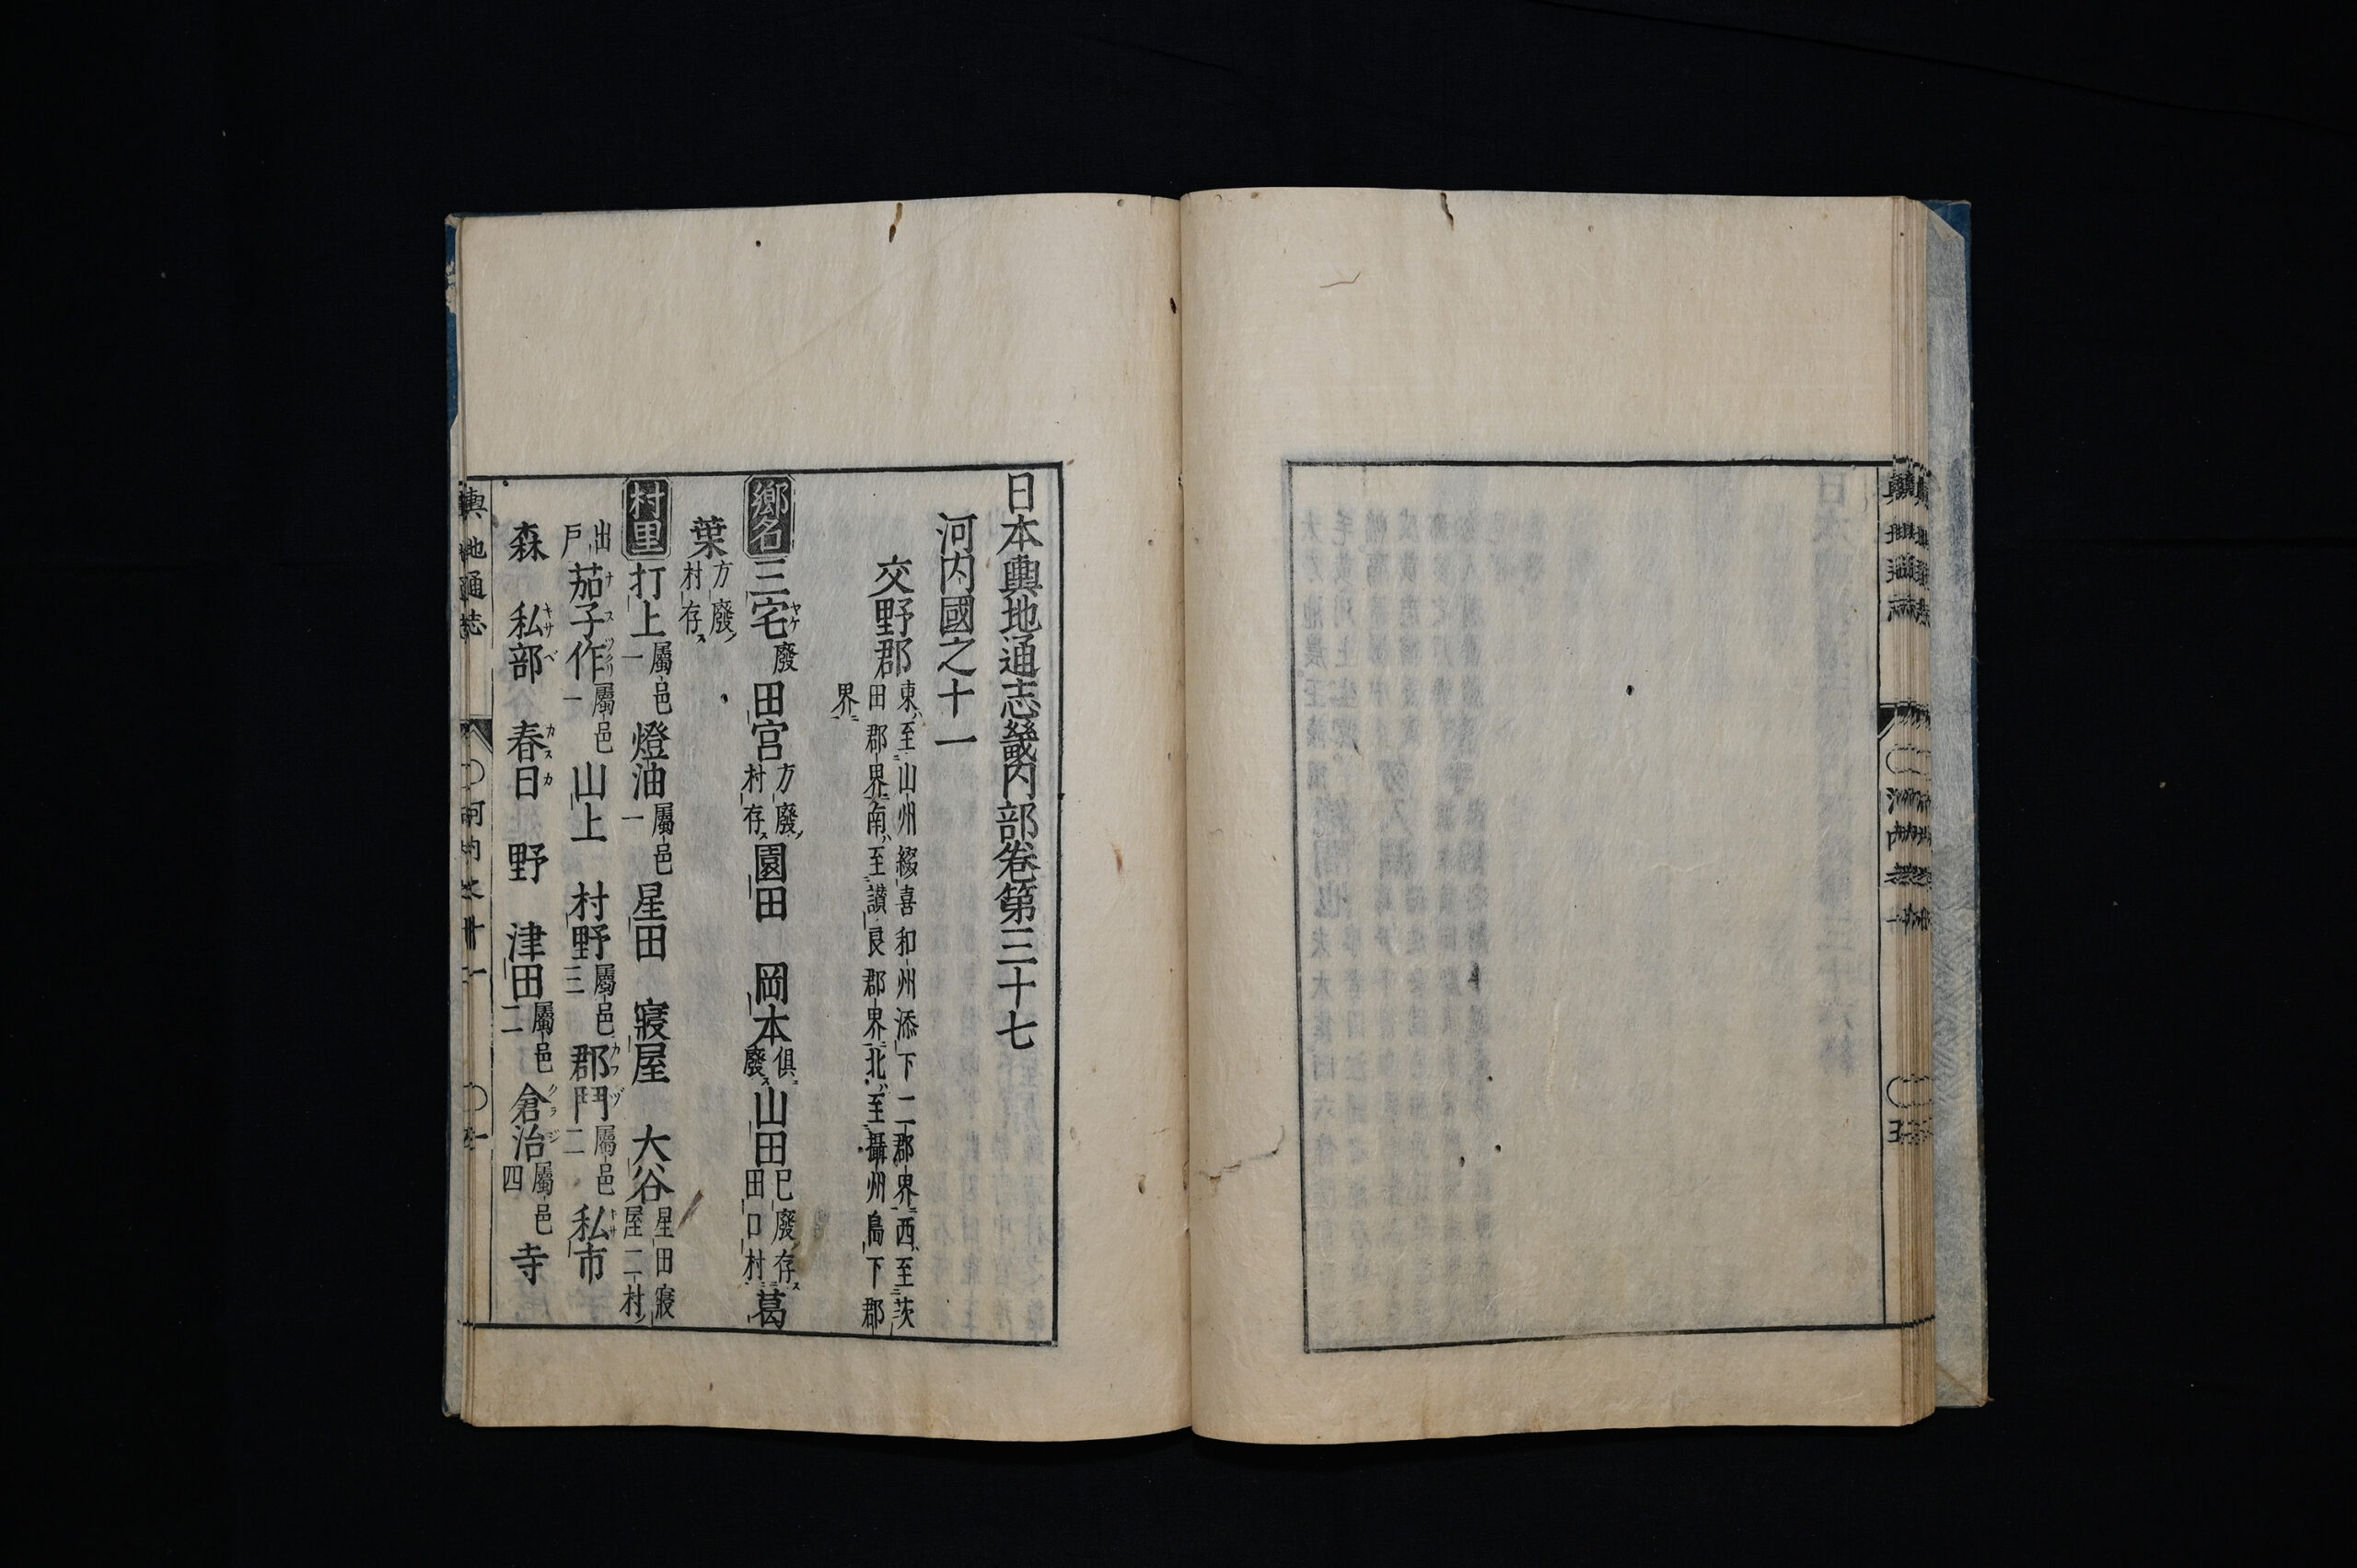 日本輿地通志畿内部卷第三十七
河内國之十一
交野郡 東ハ至山州綴喜和州添下二郡界西ハ至茨
田郡界南ハ至讃良郡界北ハ至攝州島下郡
界
鄉名 三宅ヤケ 廢 田宮 方廢村存ス 園田 岡本 俱廢ス 山田 已廢存ス田口村 葛
葉 方廢村存ス
村里 打上 屬邑一 燈油 屬邑一 星田 寢屋 大谷 星田寢屋二村
出戶 茄子作ナスヅクリ 屬邑一 山上 村野 屬邑三 郡門カウヅ 屬邑二 私市キサ
森 私部キサベ 春日カスカ 野 津田 屬邑二 倉治クラジ 屬邑四 寺
輿地通志 河内之十一